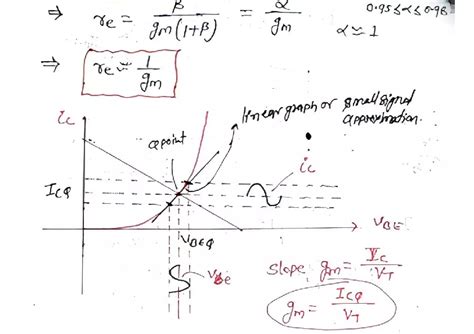 ⇒ re = β / gm(1+β) = α / gm 0.95≤α≤0.98
α ≈ 1
⇒ re ≈ 1 / gm
ic
linear graph or small signal
approximation.
Q point
ic
ICQ
VBE
VBEQ
Vbe
slope gm = Ic / VT
gm = ICQ / VT